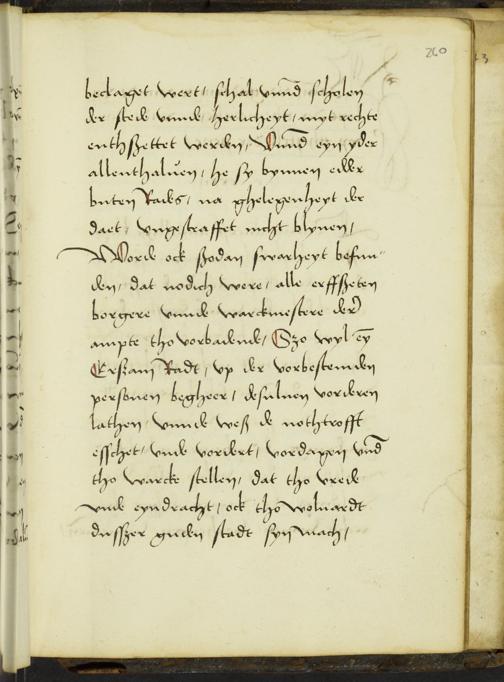 260
beclaget wert / schal vnnd scholen
der stede vnnde herlicheyt / myt rechte
enthszettet werden / Vnnd eyn yder
allenthaluen / he sy bynnen edder
buten Rades / na ghelegenheyt der
daet / vngestraffet nicht blyuen /
Worde ock szodan swarheyt befun
den / dat nodich were / alle erffszeten
borgere vnnde warckmestere der
ampte tho vorbadende / Szo wyl eyn
Erszam Radt / vp der vorbestemden
personen begheer / desuluen vorderen
lathen / vnnde wesz de nothtrofft
esschet / vnde vordert / vordagen vnd
tho warcke stellen / dat tho vrede
vnde eyndracht / ock tho woluardt
dusszer guden stadt syn mach /